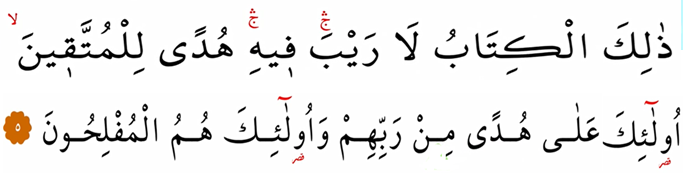 ذٰلِكَ الْكِتَابُ لَا رَيْبَۚۛ فٖيهِۚۛ هُدًى لِلْمُتَّقٖينَۙ
اُو۬لٰٓئِكَ عَلٰى هُدًى مِنْ رَبِّهِمْ وَاُو۬لٰٓئِكَ هُمُ الْمُفْلِحُونَ ٥